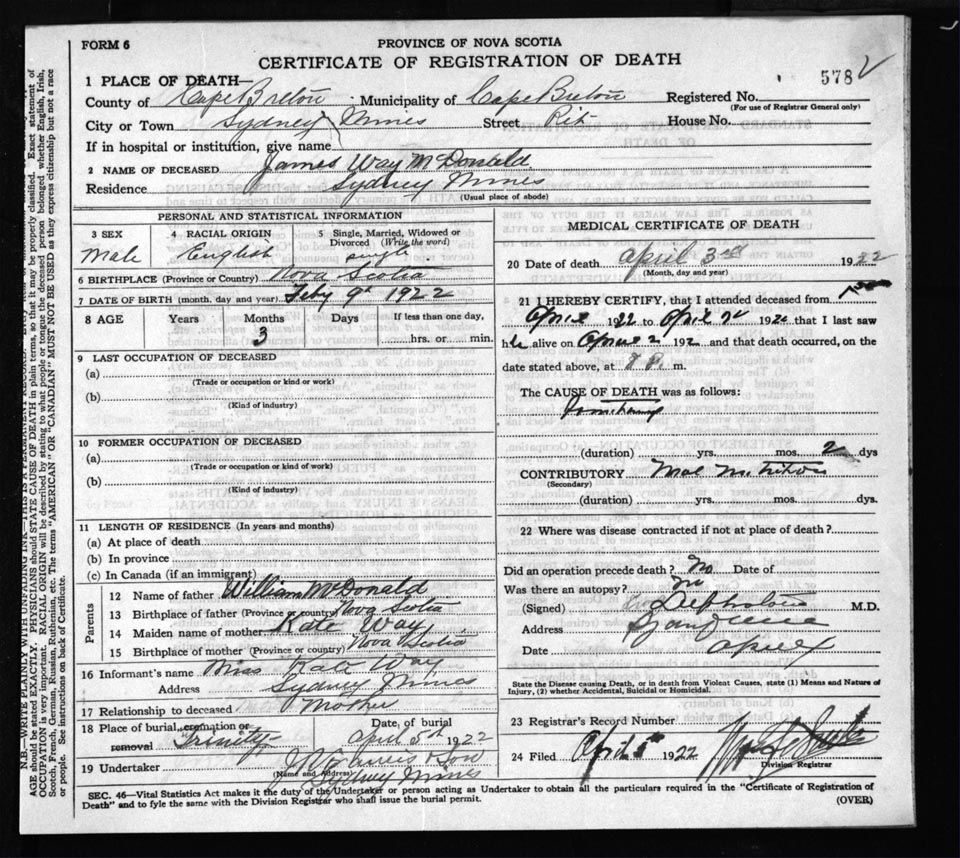 FORM 6
PROVINCE OF NOVA SCOTIA
CERTIFICATE OF REGISTRATION OF DEATH
578
1 PLACE OF DEATH—
County of Cape Breton Municipality of Cape Breton Registered No.
(For use of Registrar General only)
City or Town Sydney Mines Street Pit House No.
If in hospital or institution, give name
2 NAME OF DECEASED James Way McDonald
Residence Sydney Mines
(Usual place of abode)
PERSONAL AND STATISTICAL INFORMATION
3 SEX Male
4 RACIAL ORIGIN English
5 Single, Married, Widowed or Divorced (Write the word) single
6 BIRTHPLACE (Province or Country) Nova Scotia
7 DATE OF BIRTH (month, day and year) Feby 9th 1922
8 AGE Years Months Days If less than one day,
3 hrs. or min.
9 LAST OCCUPATION OF DECEASED
(a)
(Trade or occupation or kind or work)
(b)
(Kind of industry)
10 FORMER OCCUPATION OF DECEASED
(a)
(Trade or occupation or kind or work)
(b)
(Kind of industry)
11 LENGTH OF RESIDENCE (In years and months)
(a) At place of death
(b) In province
(c) In Canada (if an immigrant)
Parents
12 Name of father William McDonald
13 Birthplace of father (Province or country) Nova Scotia
14 Maiden name of mother Kate Way
15 Birthplace of mother (Province or country) Nova Scotia
16 Informant's name Miss Kate Way
Address Sydney Mines
17 Relationship to deceased Mother
18 Place of burial, cremation or removal Trinity Date, of burial April 5th 1922
19 Undertaker & Son
(Name and Address) Sydney Mines
MEDICAL CERTIFICATE OF DEATH
20 Date of death April 3rd 1922
(Month, day and year)
21 I HEREBY CERTIFY, that I attended deceased from
April 1922 to April 2 192 that I last saw
h alive on April 2 192 and that death occurred, on the
date stated above, at 8 P. m.
The CAUSE OF DEATH was as follows:
(duration) yrs. mos. 2 dys
CONTRIBUTORY Mal Nutrition
(Secondary)
(duration) yrs. mos. dys.
22 Where was disease contracted if not at place of death?
Did an operation precede death? No Date of
Was there an autopsy? No
(Signed) M.D.
Address
Date April
State the Disease causing Death, or in death from Violent Causes, state (1) Means and Nature of
Injury, (2) whether Accidental, Suicidal or Homicidal.
23 Registrar's Record Number
24 Filed April 5 1922
Division Registrar
SEC. 46—Vital Statistics Act makes it the duty of the Undertaker or person acting as Undertaker to obtain all the particulars required in the "Certificate of Registration of
Death" and to fyle the same with the Division Registrar who shall issue the burial permit. (OVER)
N.B.—WRITE PLAINLY WITH UNFADING INK—THIS IS A PERMANENT RECORD.
AGE should be stated EXACTLY. PHYSICIANS should STATE CAUSE OF DEATH in plain terms, so that it may be properly classified. Exact statement of
OCCUPATION is very important. RACIAL ORIGIN will be described by stating to what people or tongue the deceased person belonged whether English, Irish,
Scotch, French, German, Russian, Ruthenian, etc. The terms "AMERICAN" OR "CANADIAN" MUST NOT BE USED as they express citizenship but not a race
or people. See instructions on back of Certificate.